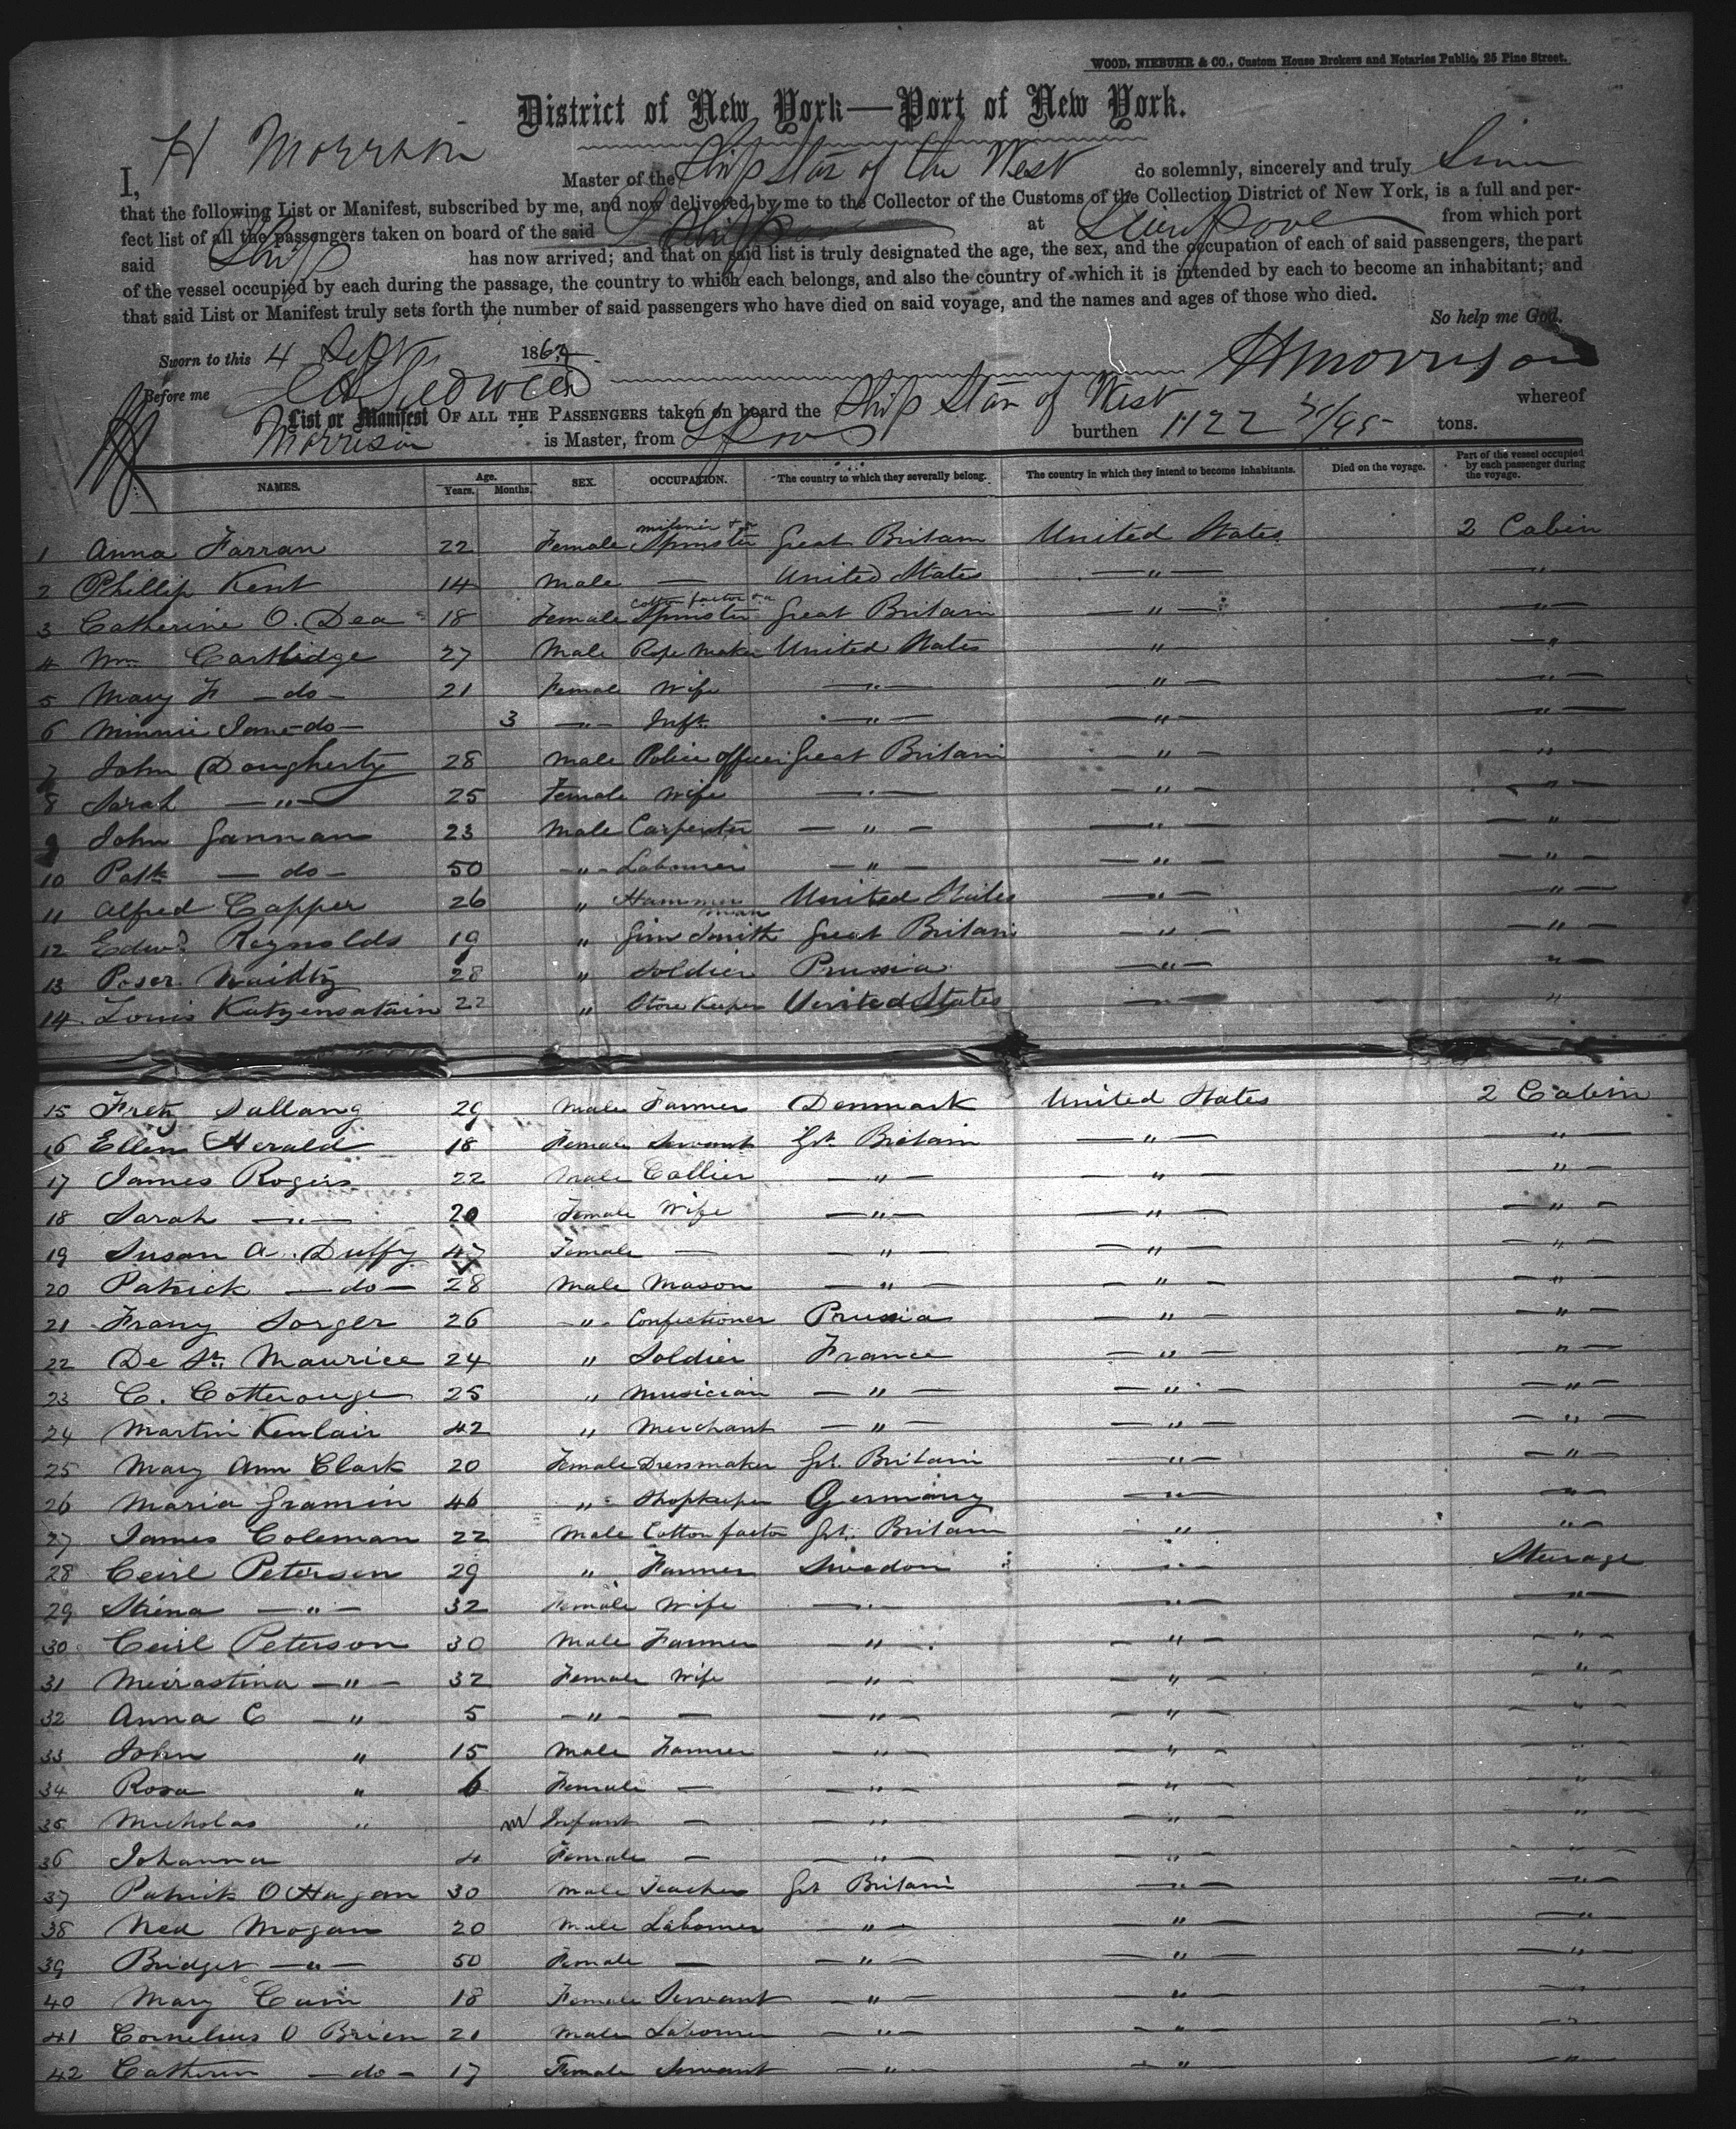 WOOD, NIEBUHR & CO., Custom House Brokers and Notaries Public, 25 Pine Street.
District of New York—Port of New York.
I, H Morrison Master of the Ship Star of the West do solemnly, sincerely and truly
that the following List or Manifest, subscribed by me, and now delivered by me to the Collector of the Customs of the Collection District of New York, is a full and per-
fect list of all the passengers taken on board of the said Ship at Liverpool from which port
said Ship has now arrived; and that on said list is truly designated the age, the sex, and the occupation of each of said passengers, the part
of the vessel occupied by each during the passage, the country to which each belongs, and also the country of which it is intended by each to become an inhabitant; and
that said List or Manifest truly sets forth the number of said passengers who have died on said voyage, and the names and ages of those who died.
So help me God.
Sworn to this 4 Sept 186 HMorrison
Before me
List or Manifest OF ALL THE PASSENGERS taken on board the Ship Star of West whereof
Morrison is Master, from LPool burthen 1122 /95 tons.
NAMES. Age. Years. Months. SEX. OCCUPATION. The country to which they severally belong. The country in which they intend to become inhabitants. Died on the voyage. Part of the vessel occupied by each passenger during the voyage.
1 Anna Farran 22 Female milinir + a Spinster Great Britain United States 2 Cabin
2 Phillip Kent 14 Male — United States — " — — " —
3 Catherine O. Dea 18 Female cotton factor + a Spinster Great Britain — " — — " —
4 Wm Cartlidge 27 Male Rope Maker United States — " — — " —
5 Mary F — do — 21 Female Wife — " — — " — — " —
6 Minnie Jane — do — 3 — " — Inft — " — — " — — " —
7 John Dougherty 28 Male Police Officer Great Britain — " — — " —
8 Sarah — " — 25 Female Wife — " — — " — — " —
9 John Gannan 23 Male Carpenter — " — — " — — " —
10 Patk — do — 50 — " — Labourer — " — — " — — " —
11 Alfred Capper 26 " Hammer man United States — " — — " —
12 Edwd Reynolds 19 " Gun Smith Great Britain — " — — " —
13 Poser 28 " Soldier Prussia — " — — " —
14 Louis Katzensatain 22 " Store Keeper United States — " — "
15 Fretz Sallang 29 Male Farmer Denmark United States 2 Cabin
16 Ellen Herald 18 Female Servant Gt. Britain — " — — " —
17 James Rogers 22 Male Collier — " — — " — — " —
18 Sarah — " — 20 Female Wife — " — — " — — " —
19 Susan A. Duffy 47 Female — — " — — " — — " —
20 Patrick — do — 28 Male Mason — " — — " — — " —
21 Frany Sorger 26 — " — Confectioner Prussia — " — — " —
22 De St. Maurice 24 " Soldier France — " — — " —
23 C. Cotterouge 25 " Musician — " — — " — — " —
24 Martin Kenlair 42 " Merchant — " — — " — — " —
25 Mary Ann Clark 20 Female Dressmaker Gt. Britain — " — — " —
26 Maria Gramin 46 " Shopkeeper Germany — " — — " —
27 James Coleman 22 Male Cotton factor Gt. Britain " — " —
28 Ceirl Petersen 29 " Farmer Swedon — " — Steerage
29 Stina — " — 32 Female Wife — " — — " — — " —
30 Ceirl Peterson 30 Male Farmer — " — — " — — " —
31 Meirastina — " — 32 Female Wife — " — — " — — " —
32 Anna C — " — 5 — " — — — " — — " — — " —
33 John " 15 Male Farmer — " — — " — — " —
34 Rosa " 6 Female — — " — — " — "
35 Nicholas " M Infant — — " — — " — "
36 Johanna 4 Female — — " — — " — "
37 Patrick O Hagan 30 Male Teacher Gt Britain — " — — " —
38 Ned Mogan 20 Male Labourer — " — " — — " —
39 Bridget — " — 50 Female — — " — — " — — " —
40 Mary Cain 18 Female Servant — " — " — — " —
41 Cornelius O Brien 21 Male Labourer — " — — " — — " —
42 Catherin — do — 17 Female Servant — " — — " — — " —